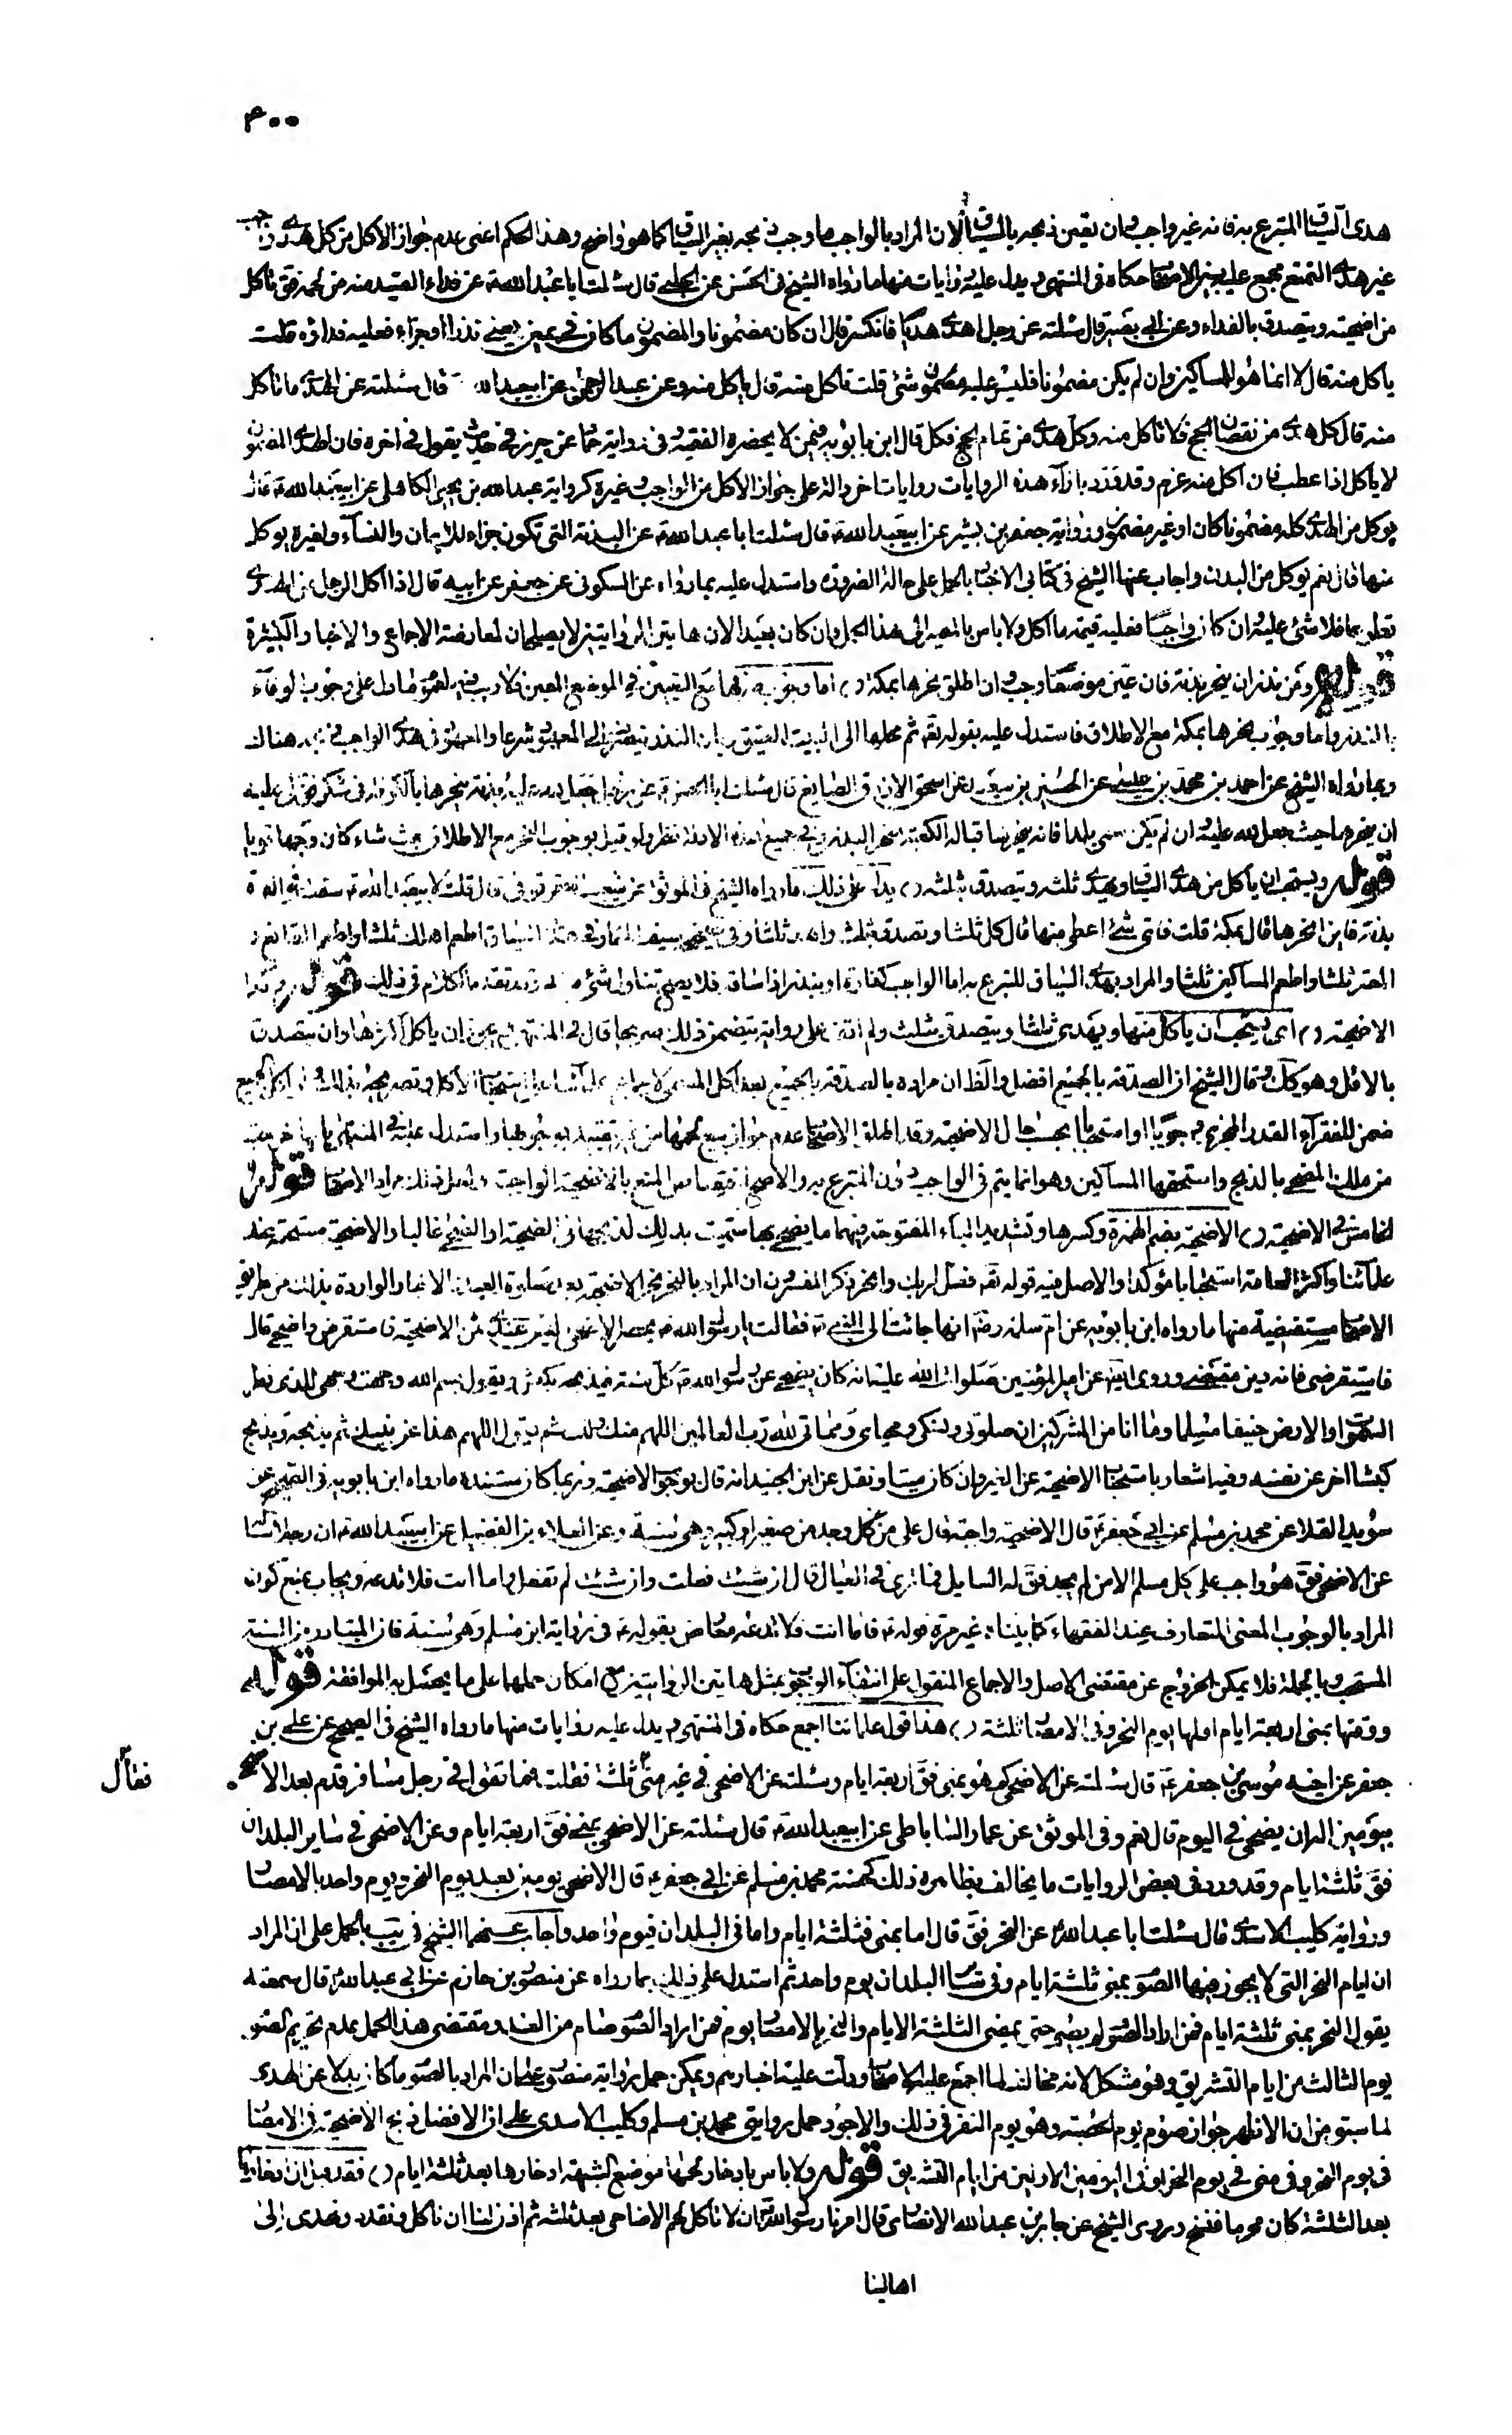 ٣٠٠
هدى السياق المتبرع به فانه غير واجب وان تعين ذبحه بالسياق لان المراد بالواجب ما وجب ذبحه بغير السياق كما هو واضح وهذا الحكم اعنى عدم جواز الاكل من كل هدى واجب
غير هدى التمتع مجمع عليه بين الاصحاب حكاه فى المنتهى ويدل عليه روايات منها ما رواه الشيخ فى الحسن عن الحلبى قال سئلت ابا عبد الله ع عن فداء الصيد منه من لحمه فق ياكل
من اضحيته ويتصدق بالفداء وعن ابى بصير قال سئلته عن رجل اهدى هديا فانكسر قال ان كان مضمونا والمضمون ما كان فى يمين يعنى نذرا او جزاء فعليه فداؤه قلت
ياكل منه قال لا انما هو للمساكين وان لم يكن مضمونا فليس عليه شئ قلت ناكل منه قال ياكل منه وعن عبد الرحمن عن ابيعبد الله قال سئلته عن الهدى ما ناكل
منه قال كل هدى من نقصان الحج فلا تاكل منه وكل هدى من تمام الحج فكل قال ابن بابويه فيمن لا يحضره الفقيه فى رواية حماد عن حريز فى حديث يقول فى اخره فان الهدى المضمون
لا ياكل اذا عطب فان اكل منه غرم وقد ورد بازاء هذه الروايات روايات اخر دالة على جواز الاكل من الواجب وغيره كرواية عبد الله بن يحيى الكاهلى عن ابيعبد الله ع قال
يوكل من الهدى كله مضمونا كان او غير مضمون ورواية جعفر بن بشير عن ابيعبد الله ع قال سئلت ابا عبد الله ع عن البدنة التى تكون جزاء للايمان والنساء ولغيره يوكل
منها قال نعم يوكل من البدن واجاب عنها الشيخ فى كتابى الاخبار بالحمل على حالة الضرورة واستدل عليه بما رواه عن السكونى عن جعفر عن ابيه قال اذا اكل الرجل من الهدى
تطوعا فلا شئ عليه وان كان واجبا فعليه قيمة ما اكل ولا باس بالمصير الى هذا الحمل وان كان بعيدا لان هاتين الروايتين لا يصلحان لمعارضة الاجماع والاخبار الكثيرة
قوله ومن نذر ان ينحر بدنة فان عين موضعا وجب وان اطلق نحرها بمكة اما وجوب نحرها مع التعيين فى الموضع المعين فلا ريب فيه لعموم ما دل على وجوب الوفاء
بالنذر واما وجوب نحرها بمكة مع الاطلاق فاستدل عليه بقوله تع ثم محلها الى البيت العتيق وبان النذر ينصرف الى المعهود شرعا والمعهود فى الهدى الواجب هناك
وبما رواه الشيخ عن احمد بن محمد بن عيسى عن الحسين بن سعيد عن اسحق الازرق الصايغ قال سئلت ابا الحسن ع عن رجل جعل لله عليه بدنة ينحرها بالكوفة فى شكر فق لى عليه
ان ينحرها حيث جعل لله عليه وان لم يكن سمى بلدا فانه ينحرها قبالة الكعبة منحر البدن وفى جميع هذه الادلة نظر ولو قيل بوجوب النحر مع الاطلاق حيث شاء كان وجها قويا
قوله ويستحب ان ياكل من هدى السياق ويهدى ثلثه ويتصدق بثلثه يدل على ذلك ما رواه الشيخ فى الموثق عن شعيب العقرقوفى قال قلت لابيعبد الله ع سقت فى العمرة
بدنة فاين انحرها قال بمكة قلت فاى شئ اعطى منها قال كل ثلثا وتصدق بثلث واهد ثلثا وفى اطعم اهلك ثلثا واطعم القانع و
المعتر ثلثا واطعم المساكين ثلثا والمراد بهدى السياق المتبرع به اما الواجب كفارة او بنذر اذا ساقه فلا يصح تناول شئ منه وقد تقدم الكلام فى ذلك قوله وكذا
الاضحية اى يستحب ان ياكل منها ويهدى ثلثا ويتصدق بثلث ولم اقف على رواية يتضمن ذلك صريحا قال فى المنتهى ان ياكل اكثرها وان يتصدق
بالاقل وهو كك وقال الشيخ ان الصدقة بالجميع افضل والظ ان مراده بالصدقة بالجميع بعد اكل المسمى لاجماع علمائنا على استحباب الاكل
ضمن للفقراء القدر المجزى وجوبا او استحبابا بحسب حال الاضحية وقد اطلق الاصحاب عدم جواز بيع لحمها من غير تقييد بوجوبها واستدل عليه فى المنتهى بانها خرجت
من ملك المضحى بالذبح واستحقها المساكين وهو انما يتم فى الواجب دون المتبرع به والاصح اختصاص المنع بالاضحية الواجبة ولعل ذلك مراد الاصحاب قوله
الخامس فى الاضحية الاضحية بضم الهمزة وكسرها وتشديد الياء المفتوحة فيهما ما يضحى بها سميت بذلك لذبحها فى الضحية او الضحى غالبا والاضحية مستحبة عند
علمائنا واكثر العامة استحبابا مؤكدا والاصل فيه قوله تع فصل لربك وانحر ذكر المفسرون ان المراد بالنحر نحر الاضحية بعد صلوة العيد والاخبار الواردة بذلك من طريق
الاصحاب مستفيضة منها ما رواه ابن بابويه عن ام سلمة رض انها جائت الى النبى ص فقالت يا رسول الله ص يحضر الاضحى وليس عندى ثمن الاضحية فاستقرض واضحى قال
فاستقرضى فانه دين مقضى وروى ايضا عن امير المؤمنين صلوات الله عليه انه كان يضحى عن رسول الله ص كل سنة فيذبحه بكبش ويقول بسم الله وجهت وجهى للذى فطر
السموات والارض حنيفا مسلما وما انا من المشركين ان صلوتى ونسكى ومحياى ومماتى لله رب العالمين اللهم منك ولك ثم يقول اللهم هذا عن نبيك ثم يذبحه ويذبح
كبشا اخر عن نفسه وفيه اشعار باستحباب الاضحية عن الغير وان كان ميتا ونقل عن ابن الجنيد انه قال بوجوب الاضحية وربما كان مستنده ما رواه ابن بابويه فى الصحيح عن
سويد القلا عن محمد بن مسلم عن ابى جعفر ع قال الاضحية واجبة على من وجد من صغير او كبير وهى سنة وعن العلاء بن الفضيل عن ابيعبد الله ع ان رجلا سئله
عن الاضحى فق هو واجب على كل مسلم الا من لم يجد فق له السايل فما ترى فى العيال قال ان شئت فعلت وان شئت لم تفعل واما انت فلا تدعه ويجاب بمنع كون
المراد بالوجوب المعنى المتعارف عند الفقهاء كما بيناه غير مرة قوله ع فاما انت فلا تدعه معارض بقوله ع فى رواية ابن مسلم وهى سنة فان المتبادر من السنة
المستحب وبالجملة فلا يمكن الخروج عن مقتضى الاصل والاجماع المنقول على انتفاء الوجوب بمثل هاتين الروايتين مع امكان حملهما على ما يحصل به الموافقة قوله
ووقتها بمنى اربعة ايام اولها يوم النحر وفى الامصار ثلثة هذا قول علمائنا اجمع حكاه فى المنتهى ويدل عليه روايات منها ما رواه الشيخ فى الصحيح عن على بن
جعفر عن اخيه موسى بن جعفر ع قال سئلته عن الاضحى كم هو بمنى فق اربعة ايام وسئلته عن الاضحى فى غير منى ثلثة فقلت فما تقول فى رجل مسافر قدم بعد الاضحى
فقال
بيومين اله ان يضحى فى اليوم قال نعم وفى الموثق عن عمار الساباطى عن ابيعبد الله ع قال سئلته عن الاضحى بمنى فق اربعة ايام وعن الاضحى فى ساير البلدان
فق ثلثة ايام وقد ورد فى بعض الروايات ما يخالف بظاهره ذلك كحسنة محمد بن مسلم عن ابى جعفر ع قال الاضحى يومين بعد يوم النحر ويوم واحد بالامصار
ورواية كليب الاسدى قال سئلت ابا عبد الله ع عن النحر فق قال اما بمنى فثلثة ايام واما فى البلدان فيوم واحد واجاب عنهما الشيخ فى يب بالحمل على ان المراد
ان ايام النحر التى لا يجوز فيها الصوم بمنى ثلثة ايام وفى ساير البلدان يوم واحد ثم استدل على ذلك بما رواه عن منصور بن حازم عن ابى عبد الله ع قال سمعته
يقول النحر بمنى ثلثة ايام فمن اراد الصوم لم يصم حتى يمضى الثلثة الايام والنحر بالامصار يوم فمن اراد الصوم صام من الغد ومقتضى هذا الحمل عدم تحريم صوم
يوم الثالث من ايام التشريق وهو مشكل لانه مخالف لما اجمع عليه الاصحاب ودلت عليه اخبارهم ويمكن حمل رواية منصور على ان المراد بالصوم ما كان بدلا عن الهدى
لما سبق من ان الاظهر جواز صوم يوم الحصبة وهو يوم النفر فى ذلك والاجود حمل روايتى محمد بن مسلم وكليب الاسدى على ان الافضل ذبح الاضحية فى الامصار
فى يوم النحر وفى منى فى يوم النحر وفى اليومين الاولين من ايام التشريق قوله ولا باس بادخار لحمها موضع الشبهة ادخارها بعد ثلثة ايام فقد
بعد الثلثة كان محرما فنسخ وروى الشيخ عن جابر بن عبد الله الانصارى قال امرنا رسول الله ص ان لا ناكل لحم الاضاحى بعد ثلثة ثم اذن لنا ان ناكل ونقدد ونهدى الى
اهالينا